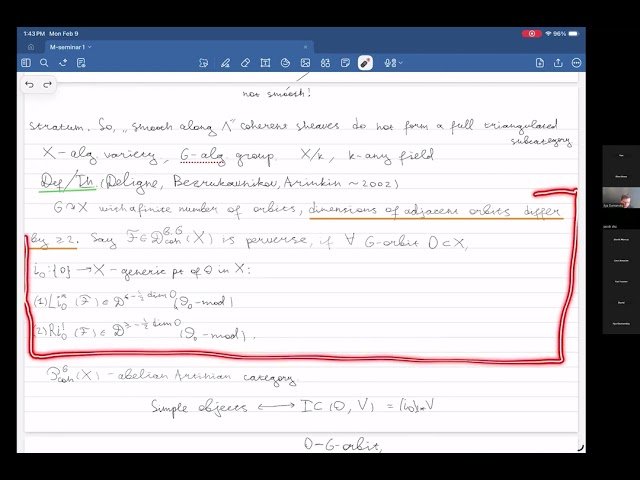 1:43 PM Mon Feb 9
96%
M-seminar 1
not smooth!
stratum. So, „smooth along Λ" coherent sheaves do not form a full triangulated
subcategory
X - alg variety, G-alg group X/k, k-any field
Def/Th. (Deligne, Bezrukavnikov, Arinkin ~2002)
G↷X with a finite number of orbits, dimensions of adjacent orbits differ
by ≥2. Say F ∈ D^{b,G}_{coh}(X) is perverse, if ∀ G-orbit O⊂X,
i_O: {O} → X - generic pt of O in X:
(1) Li_O^*(F) ∈ D^{≤ -½ dim O}(O_O-mod)
(2) Ri_O^!(F) ∈ D^{≥ -½ dim O}(O_O-mod).
P^G_{coh}(X) - abelian Artinian category.
Simple objects ⟷ IC(O, V) = (i_O)_{!*}V
O-G-orbit,